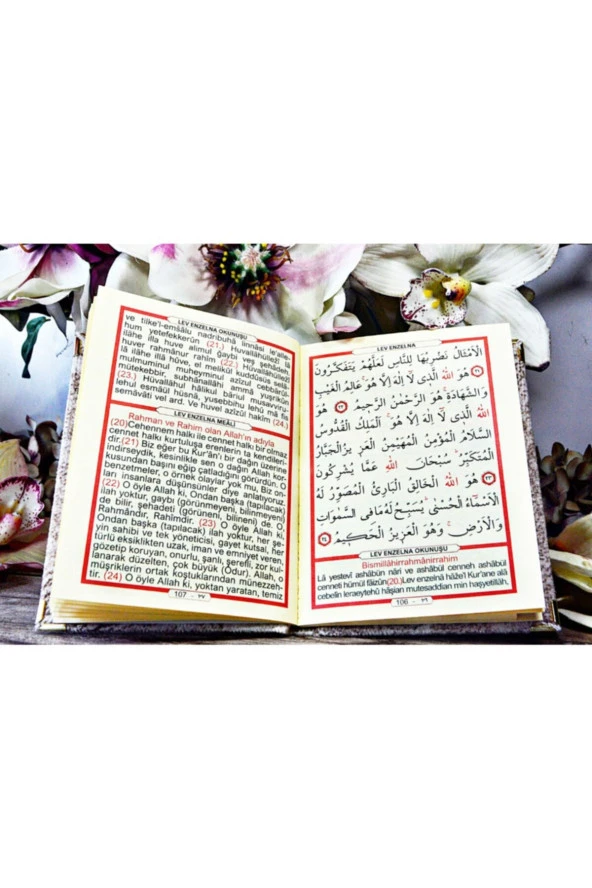 LEV ENZELNA
الْاَمْثَالُ نَضْرِبُهَا لِلنَّاسِ لَعَلَّهُمْ يَتَفَكَّرُونَ
﴿٢١﴾ هُوَ اللهُ الَّذِى لَا اِلٰهَ اِلَّا هُوَ عَالِمُ الْغَيْبِ
وَالشَّهَادَةِ هُوَ الرَّحْمٰنُ الرَّحِيمُ ﴿٢٢﴾ هُوَ
اللهُ الَّذِى لَا اِلٰهَ اِلَّا هُوَ اَلْمَلِكُ الْقُدُّوسُ
السَّلَامُ الْمُؤْمِنُ الْمُهَيْمِنُ الْعَزِيزُ الْجَبَّارُ
الْمُتَكَبِّرُ سُبْحَانَ اللهِ عَمَّا يُشْرِكُونَ
﴿٢٣﴾ هُوَ اللهُ الْخَالِقُ الْبَارِئُ الْمُصَوِّرُ لَهُ
الْاَسْمَاءُ الْحُسْنٰى يُسَبِّحُ لَهُ مَا فِى السَّمٰوَاتِ
وَالْاَرْضِ وَهُوَ الْعَزِيزُ الْحَكِيمُ ﴿٢٤﴾
LEV ENZELNA OKUNUŞU
Bismillâhirrahmânirrahim
Lâ yestevî ashâbün nâri ve ashâbül cenneh ashâbül
cenneti hümül fâizûn(20.)Lev enzelnâ hâze'l Kur'ane alâ
cebelin leraeytehû hâşian mutesaddian min haşyetillâh,
106 - ٢٦
LEV ENZELNA OKUNUŞU
ve tilke'l-emsâlu nadribuhâ linnâsi le'alle-
hum yetefekkerûn (21.) Huvallâhüllezî lâ
ilâhe illa huve alimul gaybi veş şehâdeh,
huver rahmânur rahîm (22.) Huvallâhüllezî
lâ ilâhe illâ hüve, el melikül kuddûsüs selâ-
mulmuminul muheyminul azîzul cebbârül-
mütekebbir, subhânallâhi amma yuşrikûn
(23.) Hüvallâhul hâlikul bâriul musavviru-
lehul esmâül hüsnâ, yusebbihu lehû mâ fis
semâvâti vel ard. Ve huvel azîzul hakîm (24.)
LEV ENZELNA MEÂLİ
Rahman ve Rahim olan Allah'ın adıyla
(20)Cehennem halkı ile cennet halkı bir olmaz
cennet halkı kurtuluşa erenlerin ta kendileri-
dir.(21) Biz eğer bu Kur'ân'ı bir dağın üzerine
indirseydik, kesinlikle sen o dağın Allah kor-
kusundan başını eğip çatladığını görürdün. O
benzetmeler, o örnek olaylar yok mu, Biz on-
ları insanlara düşünsünler diye anlatıyoruz.
(22) O öyle Allah ki, Ondan başka (tapılacak)
ilah yoktur, gaybı (görünmeyeni, bilinmeyeni)
de bilir, şehadeti (görüneni, bilineni) de. O,
Rahmândır, Rahîmdir. (23) O öyle Allah ki,
Ondan başka (tapılacak) ilah yoktur, her şe-
yin sahibi ve tek yöneticisi, gayet kutsal, her
türlü eksiklikten uzak, iman ve emniyet veren,
gözetip koruyan, onurlu, şanlı, şerefli, zor kul-
lanarak düzelten, çok büyük (Odur). Allah, o
müşriklerin ortak koştuklarından münezzeh-
tir. (24) O öyle Allah ki, yoktan yaratan, temiz
107 - ٢٧